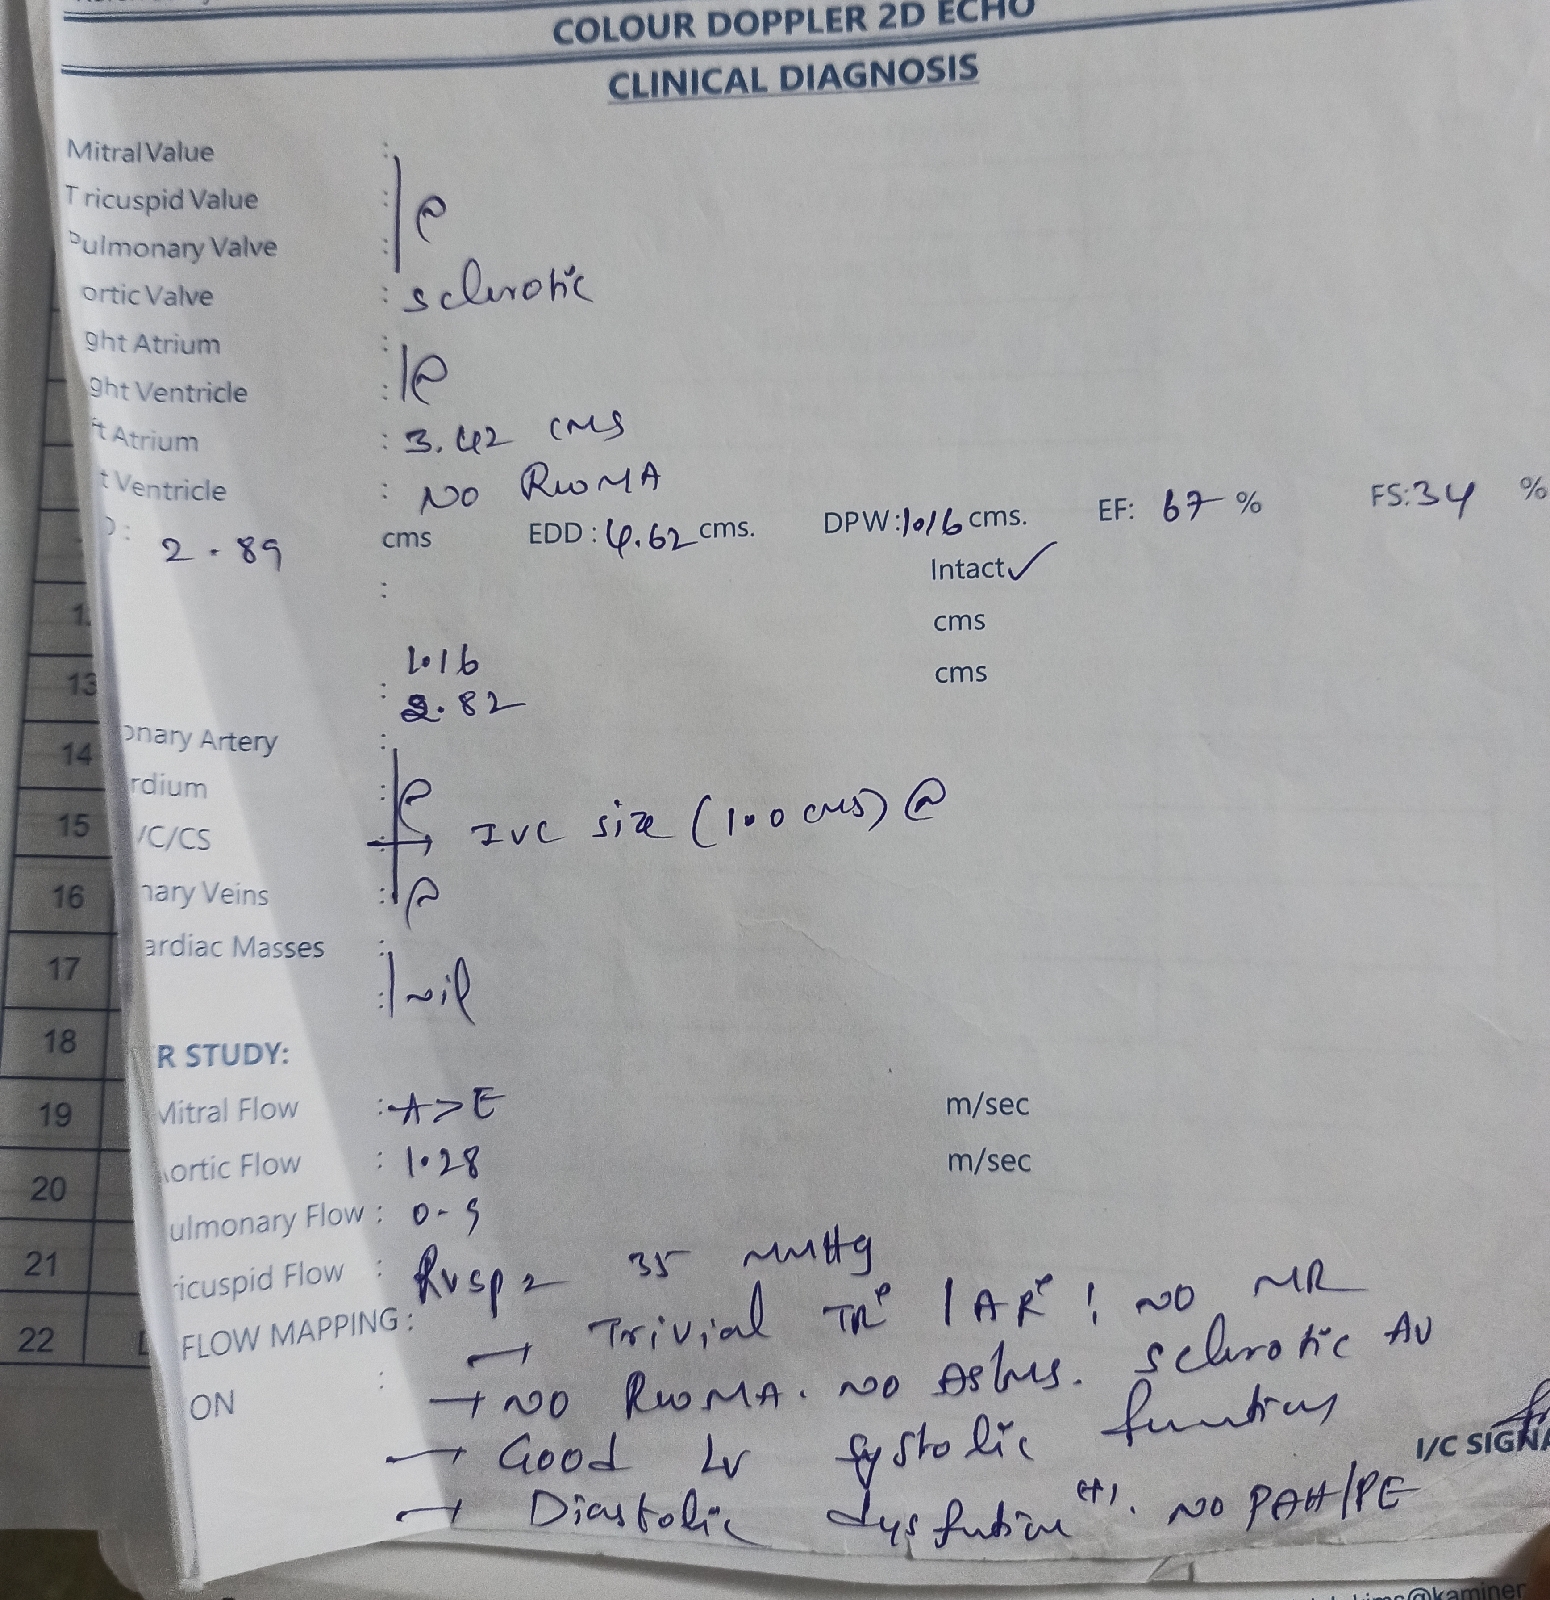 COLOUR DOPPLER 2D ECHO
CLINICAL DIAGNOSIS
Mitral Value :
Tricuspid Value :
Pulmonary Valve :
ortic Valve : sclerotic
ght Atrium :
ght Ventricle :
ft Atrium : 3.42 cms
t Ventricle : NO RWMA
D: 2.89 cms EDD : 4.62 cms. DPW: 1.16 cms. EF: 67 % FS: 34 %
: Intact ✓
cms
1.16
: 2.82 cms
onary Artery :
rdium :
VC/CS IVC size (1.0 cms)
nary Veins :
ardiac Masses :
: nil
R STUDY:
Mitral Flow : A>E m/sec
ortic Flow : 1.28 m/sec
ulmonary Flow : 0.9
ricuspid Flow : RVSP = 35 mmHg
FLOW MAPPING : → Trivial TR / AR ; NO MR
ON : → NO RWMA. NO AS/MS. sclerotic AV
→ Good LV systolic function
I/C SIGNA
→ Diastolic dysfuntion (+). NO PAH/PE
13
14
15
16
17
18
19
20
21
22
@kaminer